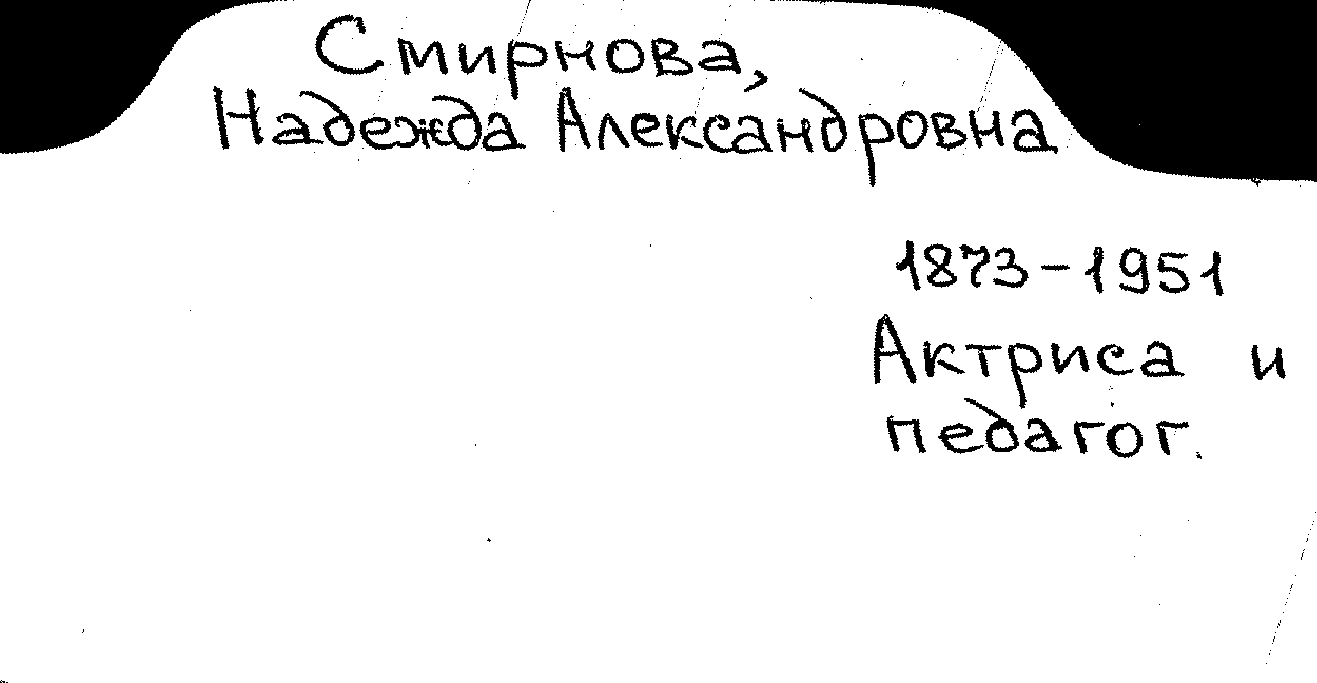 Смирнова,
Надежда Александровна
1873-1951
Актриса и
педагог.